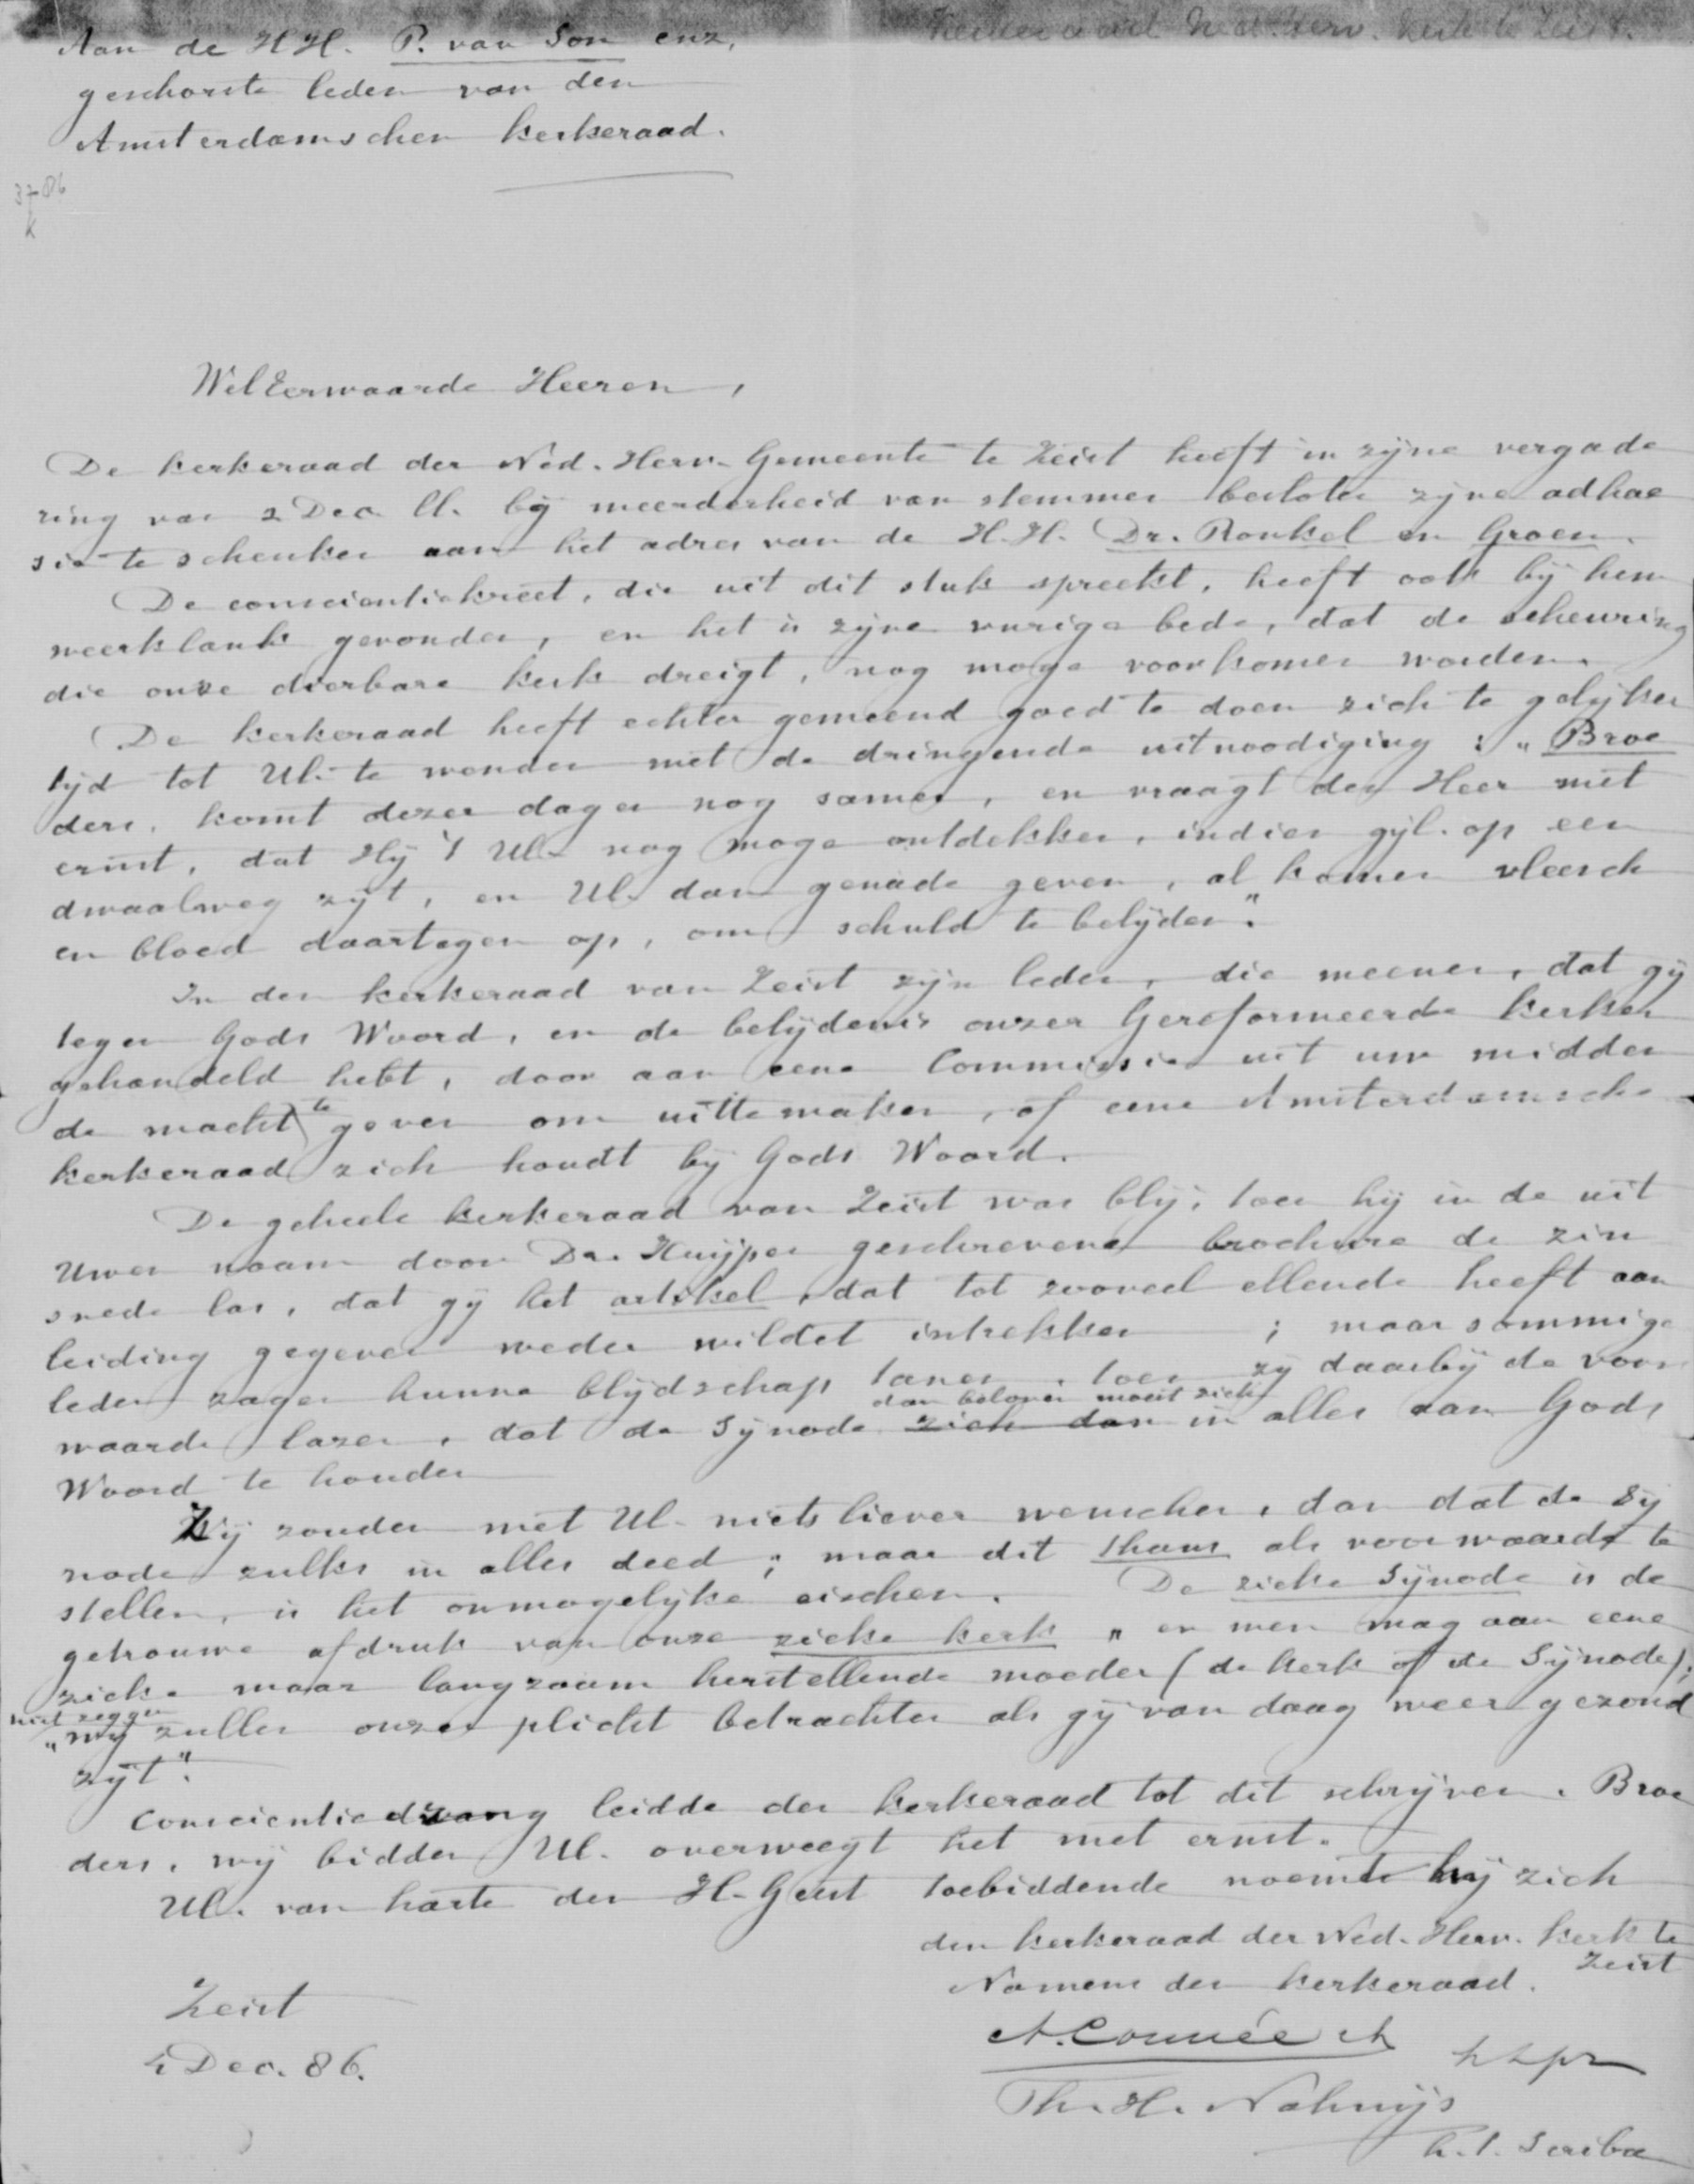 Kerkeraad Ned. Herv. Kerk te Zeist.
Aan de HH. P. van Son enz.
geschorste leden van den
Amsterdamschen kerkeraad.
WelEerwaarde Heeren,
De kerkeraad der Ned. Herv. Gemeente te Zeist heeft in zijne vergade
ring van 2 Dec ll. bij meerderheid van stemmen besloten zijne adhae
sie te schenken aan het adres van de H.H. Dr. Ronkel en Groen.
De conscientiekreet, die uit dit stuk spreekt, heeft ook bij hem
weerklank gevonden, en het is zijne vurige bede, dat de scheuring
die onze dierbare kerk dreigt, nog moge voorkomen worden.
De kerkeraad heeft echter gemeend goed te doen zich te gelijker
tijd tot Ul. te wenden met de dringende uitnoodiging: „Broe
ders, komt dezer dagen nog samen, en vraagt den Heer met
ernst, dat Hij 't Ul. nog moge ontdekken, indien gijl. op een
dwaalweg zijt, en Ul. dan genade geven, al komen vleesch
en bloed daartegen op, om schuld te belijden".
In den kerkeraad van Zeist zijn leden, die meenen, dat gij
tegen Gods Woord, en de belijdenis onzer Gereformeerde kerken
gehandeld hebt, door aan eene Commissie uit uw midden
de macht te geven om uittemaken, of eene Amsterdamsche
kerkeraad zich houdt bij Gods Woord.
De geheele kerkeraad van Zeist was blij, toen hij in de uit
Uwen naam door Dr. Kuijper geschrevene brochure de zin
snede las, dat gij het artikel, dat tot zooveel ellende heeft aan
leiding gegeven weder wildet intrekken ; maar sommige
leden zagen hunne blijdschap tanen, toen zij daarbij de voor
waarde lazen, dat de Synode zich dan dan beloven moest zich in alles aan Gods
Woord te houden
Zij zouden met Ul. niets liever wenschen, dan dat de Sy
node zulks in alles deed; maar dit thans als voorwaarde te
stellen, is het onmogelijke eischen. De zieke Synode is de
getrouwe afdruk van onze zieke kerk " en men mag aan eene
zieke maar langzaam herstellende moeder (de kerk of de Synode);
niet zeggen
„wij zullen onzen plicht betrachten als gij van daag weer gezond
zijt".
Conscientiedwang leidde den kerkeraad tot dit schrijven. Broe
ders, wij bidden Ul. overweegt het met ernst.
Ul. van harte den H. Geest toebiddende noemt hij zich
den kerkeraad der Ned. Herv. kerk te
Zeist
Namens den kerkeraad.
Zeist
4 Dec. 86.
A. Connée
Th. H. Nahuijs
h.t. Scriba